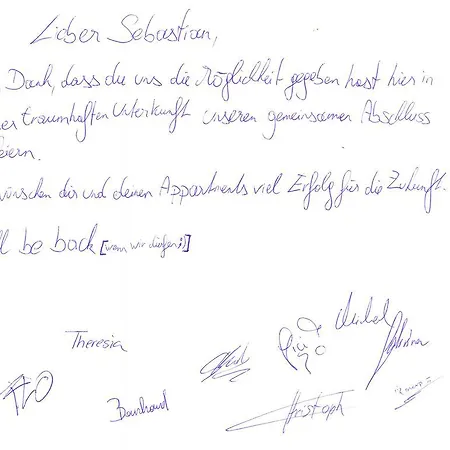 Lieber Sebastian,
Dank, dass du uns die Möglichkeit gegeben hast hier in
er traumhaften Unterkunft unseren gemeinsamen Abschluss
eiern.
wünschen dir und deinen Appartments viel Erfolg für die Zukunft.
ll be back [wenn wir dürfen ;)]
Michel
Theresia
Christoph